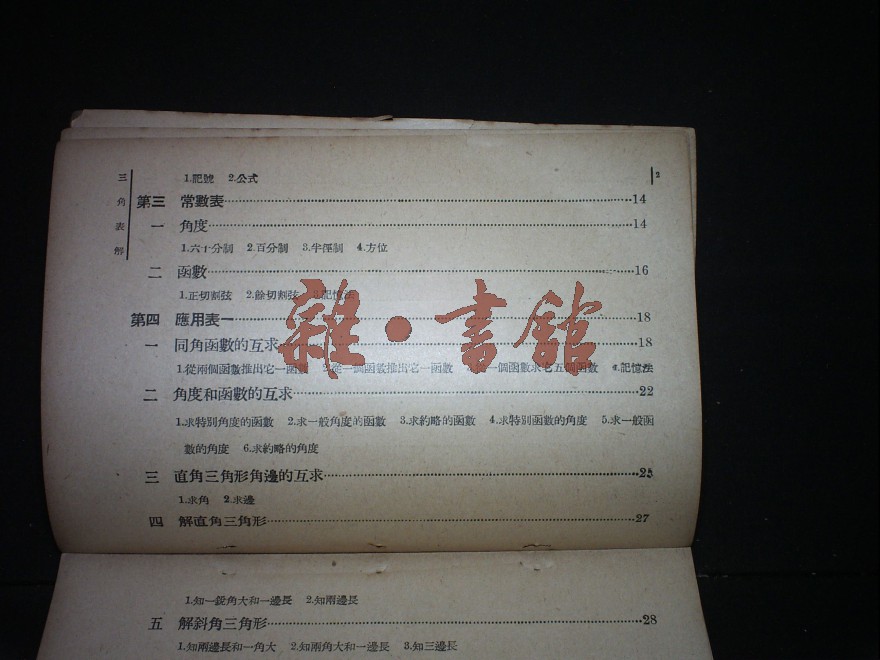 三角表解
2
1.記號 2.公式
第三 常數表 14
一 角度 14
1.六十分制 2.百分制 3.半徑制 4.方位
二 函數 16
1.正切割弦 2.餘切割弦 3.記憶法
第四 應用表一 18
一 同角函數的互求 18
1.從兩個函數推出它一函數 一個函數推出它一函數 一個函數求七五個函數 4.記憶法
二 角度和函數的互求 22
1.求特別角度的函數 2.求一般角度的函數 3.求約略的函數 4.求特別函數的角度 5.求一般函
數的角度 6.求約略的角度
三 直角三角形角邊的互求 25
1.求角 2.求邊
四 解直角三角形 27
1.知一銳角大和一邊長 2.知兩邊長
五 解斜角三角形 28
1.知兩邊長和一角大 2.知兩角大和一邊長 3.知三邊長
雜·書館